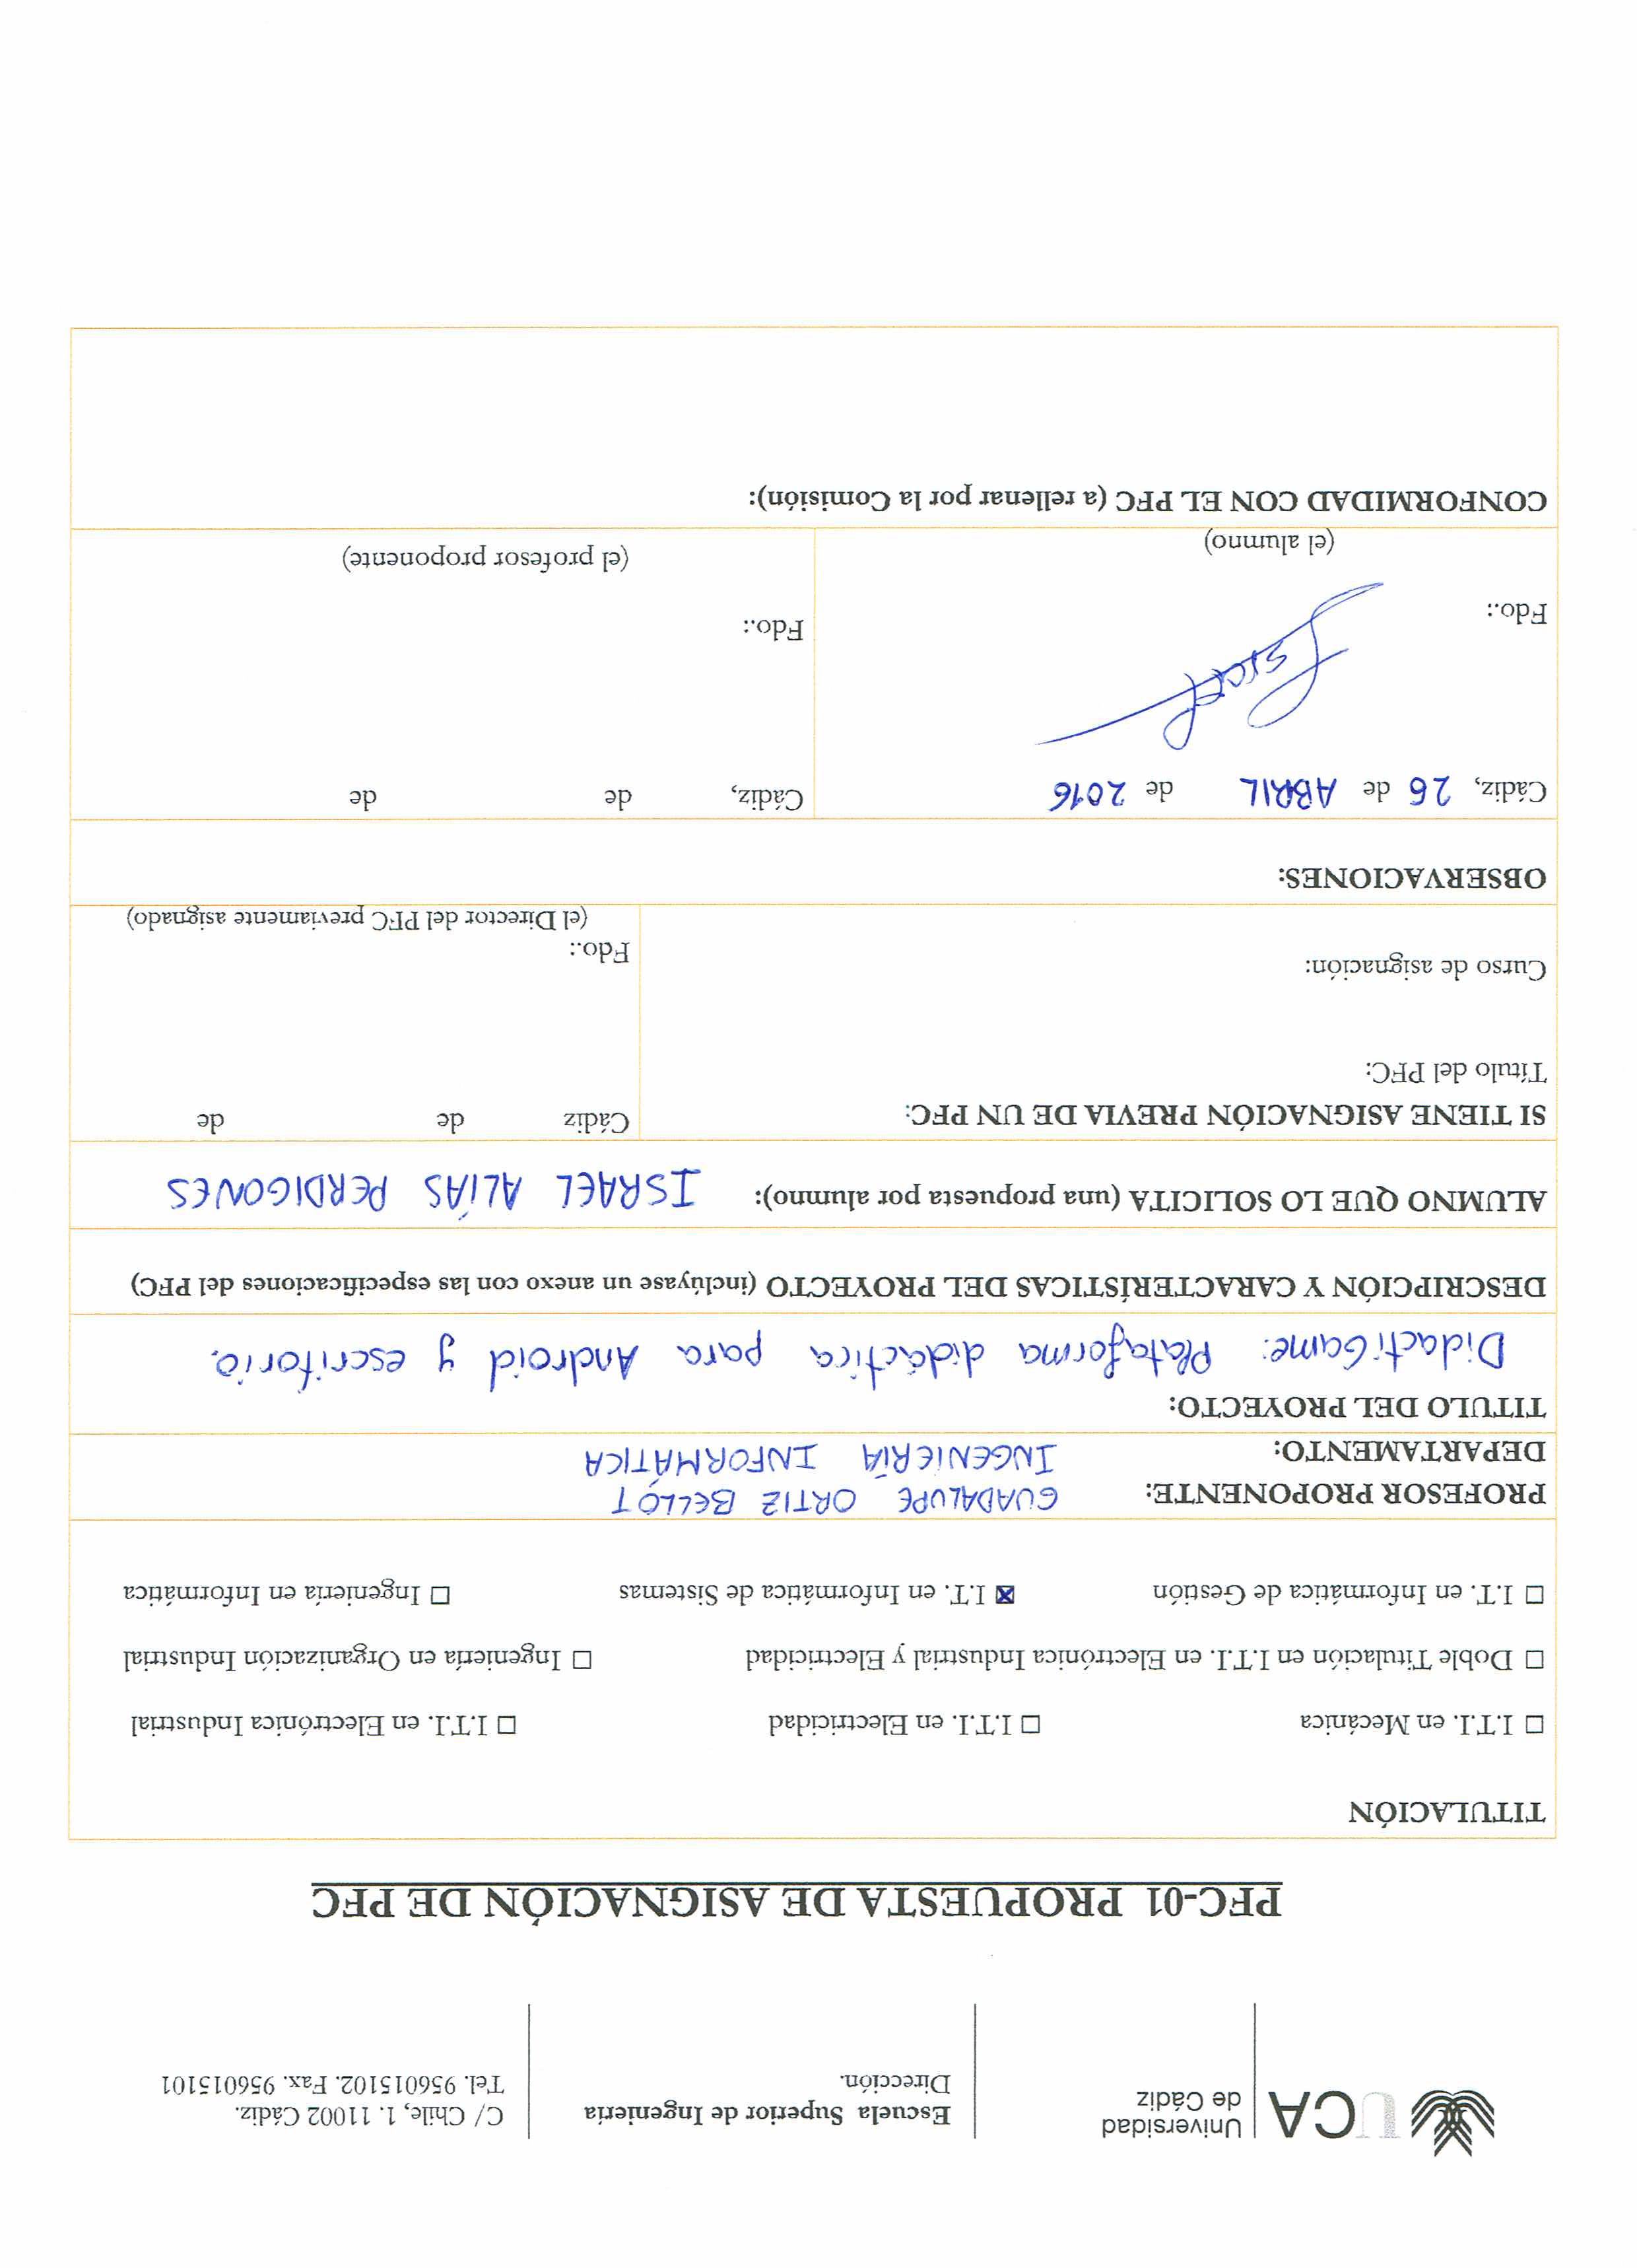 UCA
Universidad
de Cádiz
Escuela Superior de Ingeniería
Dirección.
C/ Chile, 1. 11002 Cádiz.
Tel. 956015102. Fax. 956015101
PFC-01 PROPUESTA DE ASIGNACIÓN DE PFC
TITULACIÓN
☐ I.T.I. en Mecánica ☐ I.T.I. en Electricidad ☐ I.T.I. en Electrónica Industrial
☐ Doble Titulación en I.T.I. en Electrónica Industrial y Electricidad ☐ Ingeniería en Organización Industrial
☐ I.T. en Informática de Gestión ☒ I.T. en Informática de Sistemas ☐ Ingeniería en Informática
PROFESOR PROPONENTE: GUADALUPE ORTIZ BELLOT
DEPARTAMENTO: INGENIERÍA INFORMÁTICA
TITULO DEL PROYECTO:
DidactiGame: Plataforma didáctica para Android y escritorio.
DESCRIPCIÓN Y CARACTERÍSTICAS DEL PROYECTO (inclúyase un anexo con las especificaciones del PFC)
ALUMNO QUE LO SOLICITA (una propuesta por alumno): ISRAEL ALÍAS PERDIGONES
SI TIENE ASIGNACIÓN PREVIA DE UN PFC:
Título del PFC:
Curso de asignación:
Cádiz de de
Fdo.:
(el Director del PFC previamente asignado)
OBSERVACIONES:
Cádiz, 26 de ABRIL de 2016
Israel
Fdo.:
(el alumno)
Cádiz, de de
Fdo.:
(el profesor proponente)
CONFORMIDAD CON EL PFC (a rellenar por la Comisión):